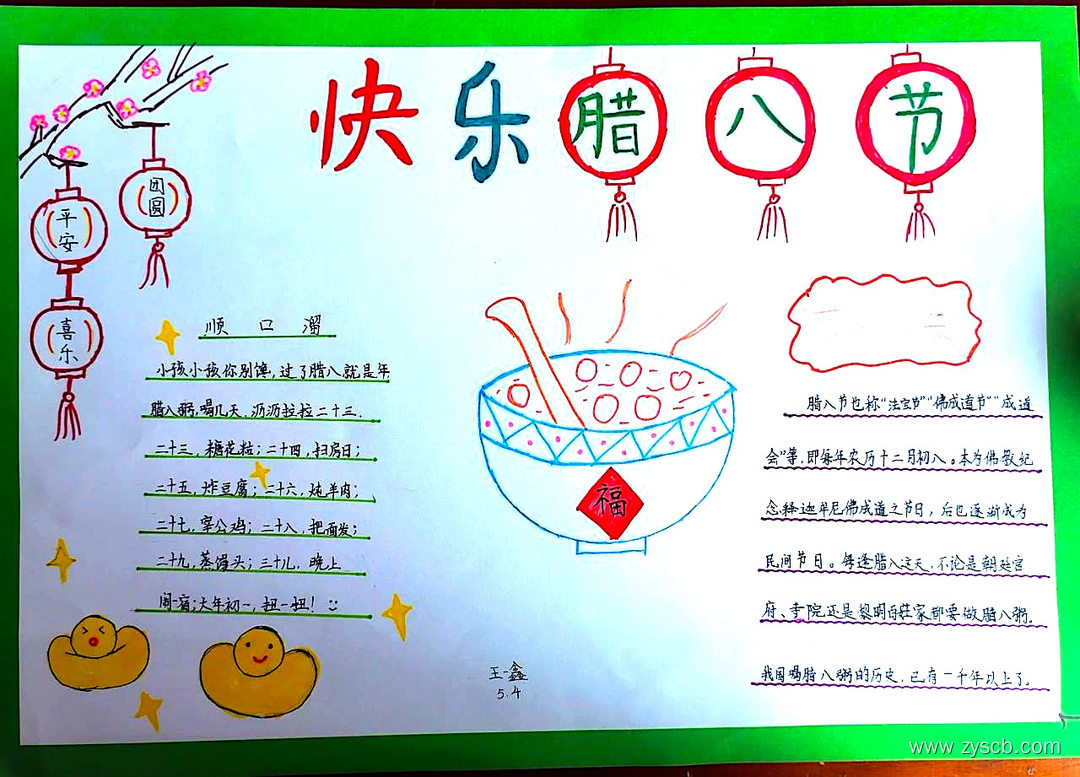 快乐腊八节
团圆
平安
喜乐
顺口溜
小孩小孩你别馋,过了腊八就是年
腊八粥,喝几天,沥沥拉拉二十三.
二十三,糖花粒;二十四,扫房日;
二十五,炸豆腐;二十六,炖羊肉;
二十七,宰公鸡;二十八,把面发;
二十九,蒸馒头;三十儿,晚上
闹一宿;大年初一,扭一扭!
福
腊八节也称“法宝节”“佛成道节”“成道
会”等,即每年农历十二月初八。本为佛教纪
念释迦牟尼佛成道之节日,后也逐渐成为
民间节日。每逢腊八这天,不论是朝廷官
府、寺院还是黎明百姓家都要做腊八粥.
我国喝腊八粥的历史,已有一千年以上了.
王一鑫
5.4
www.zyscb.com